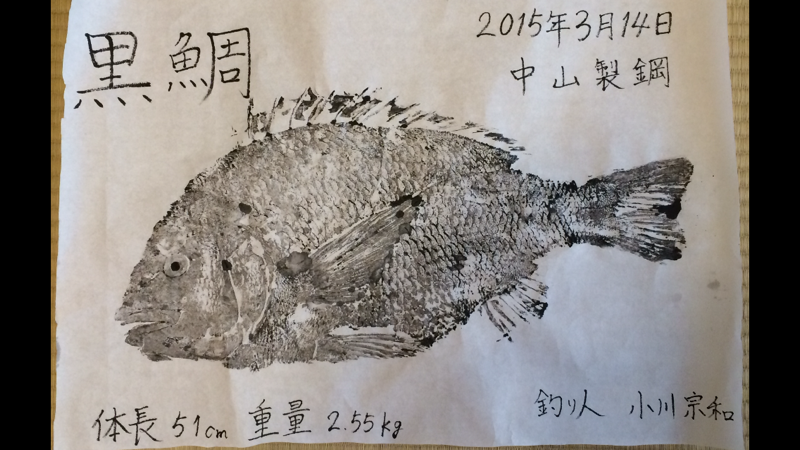 黒鯛
2015年3月14日
中山製鋼
体長51cm 重量 2.55kg
釣り人 小川宗和